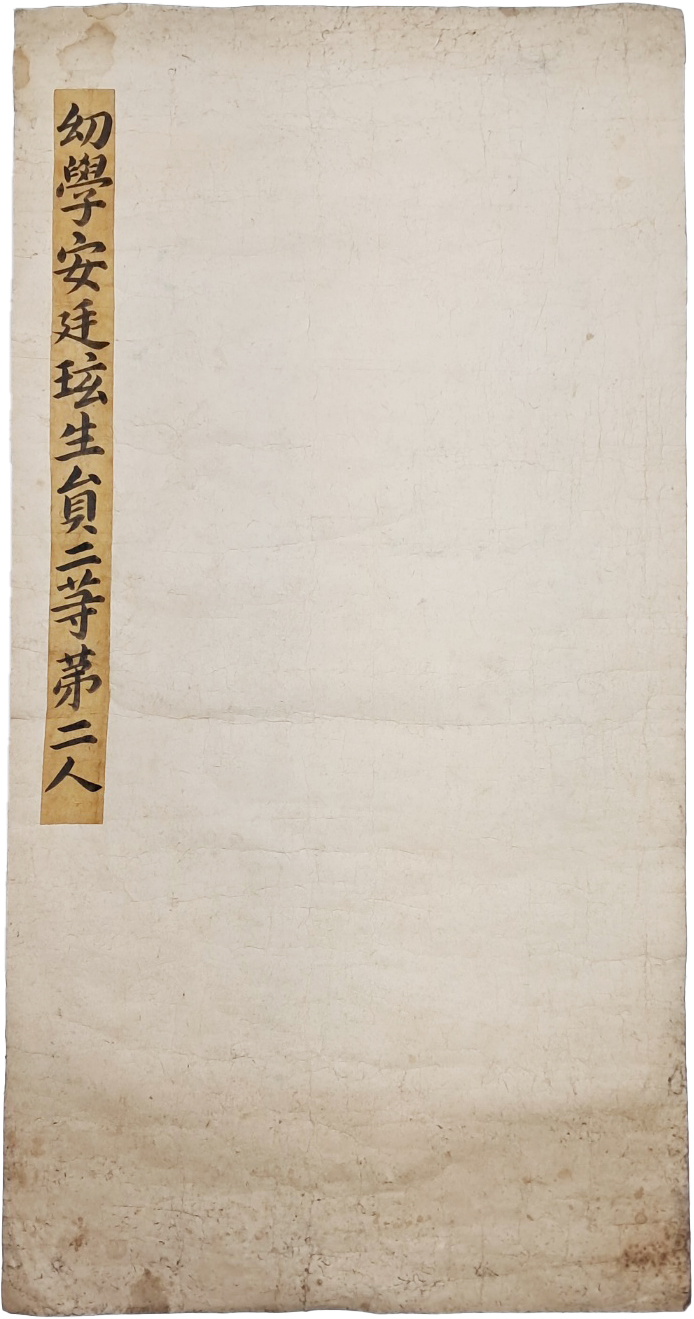 幼學安廷玹生員二等第二人